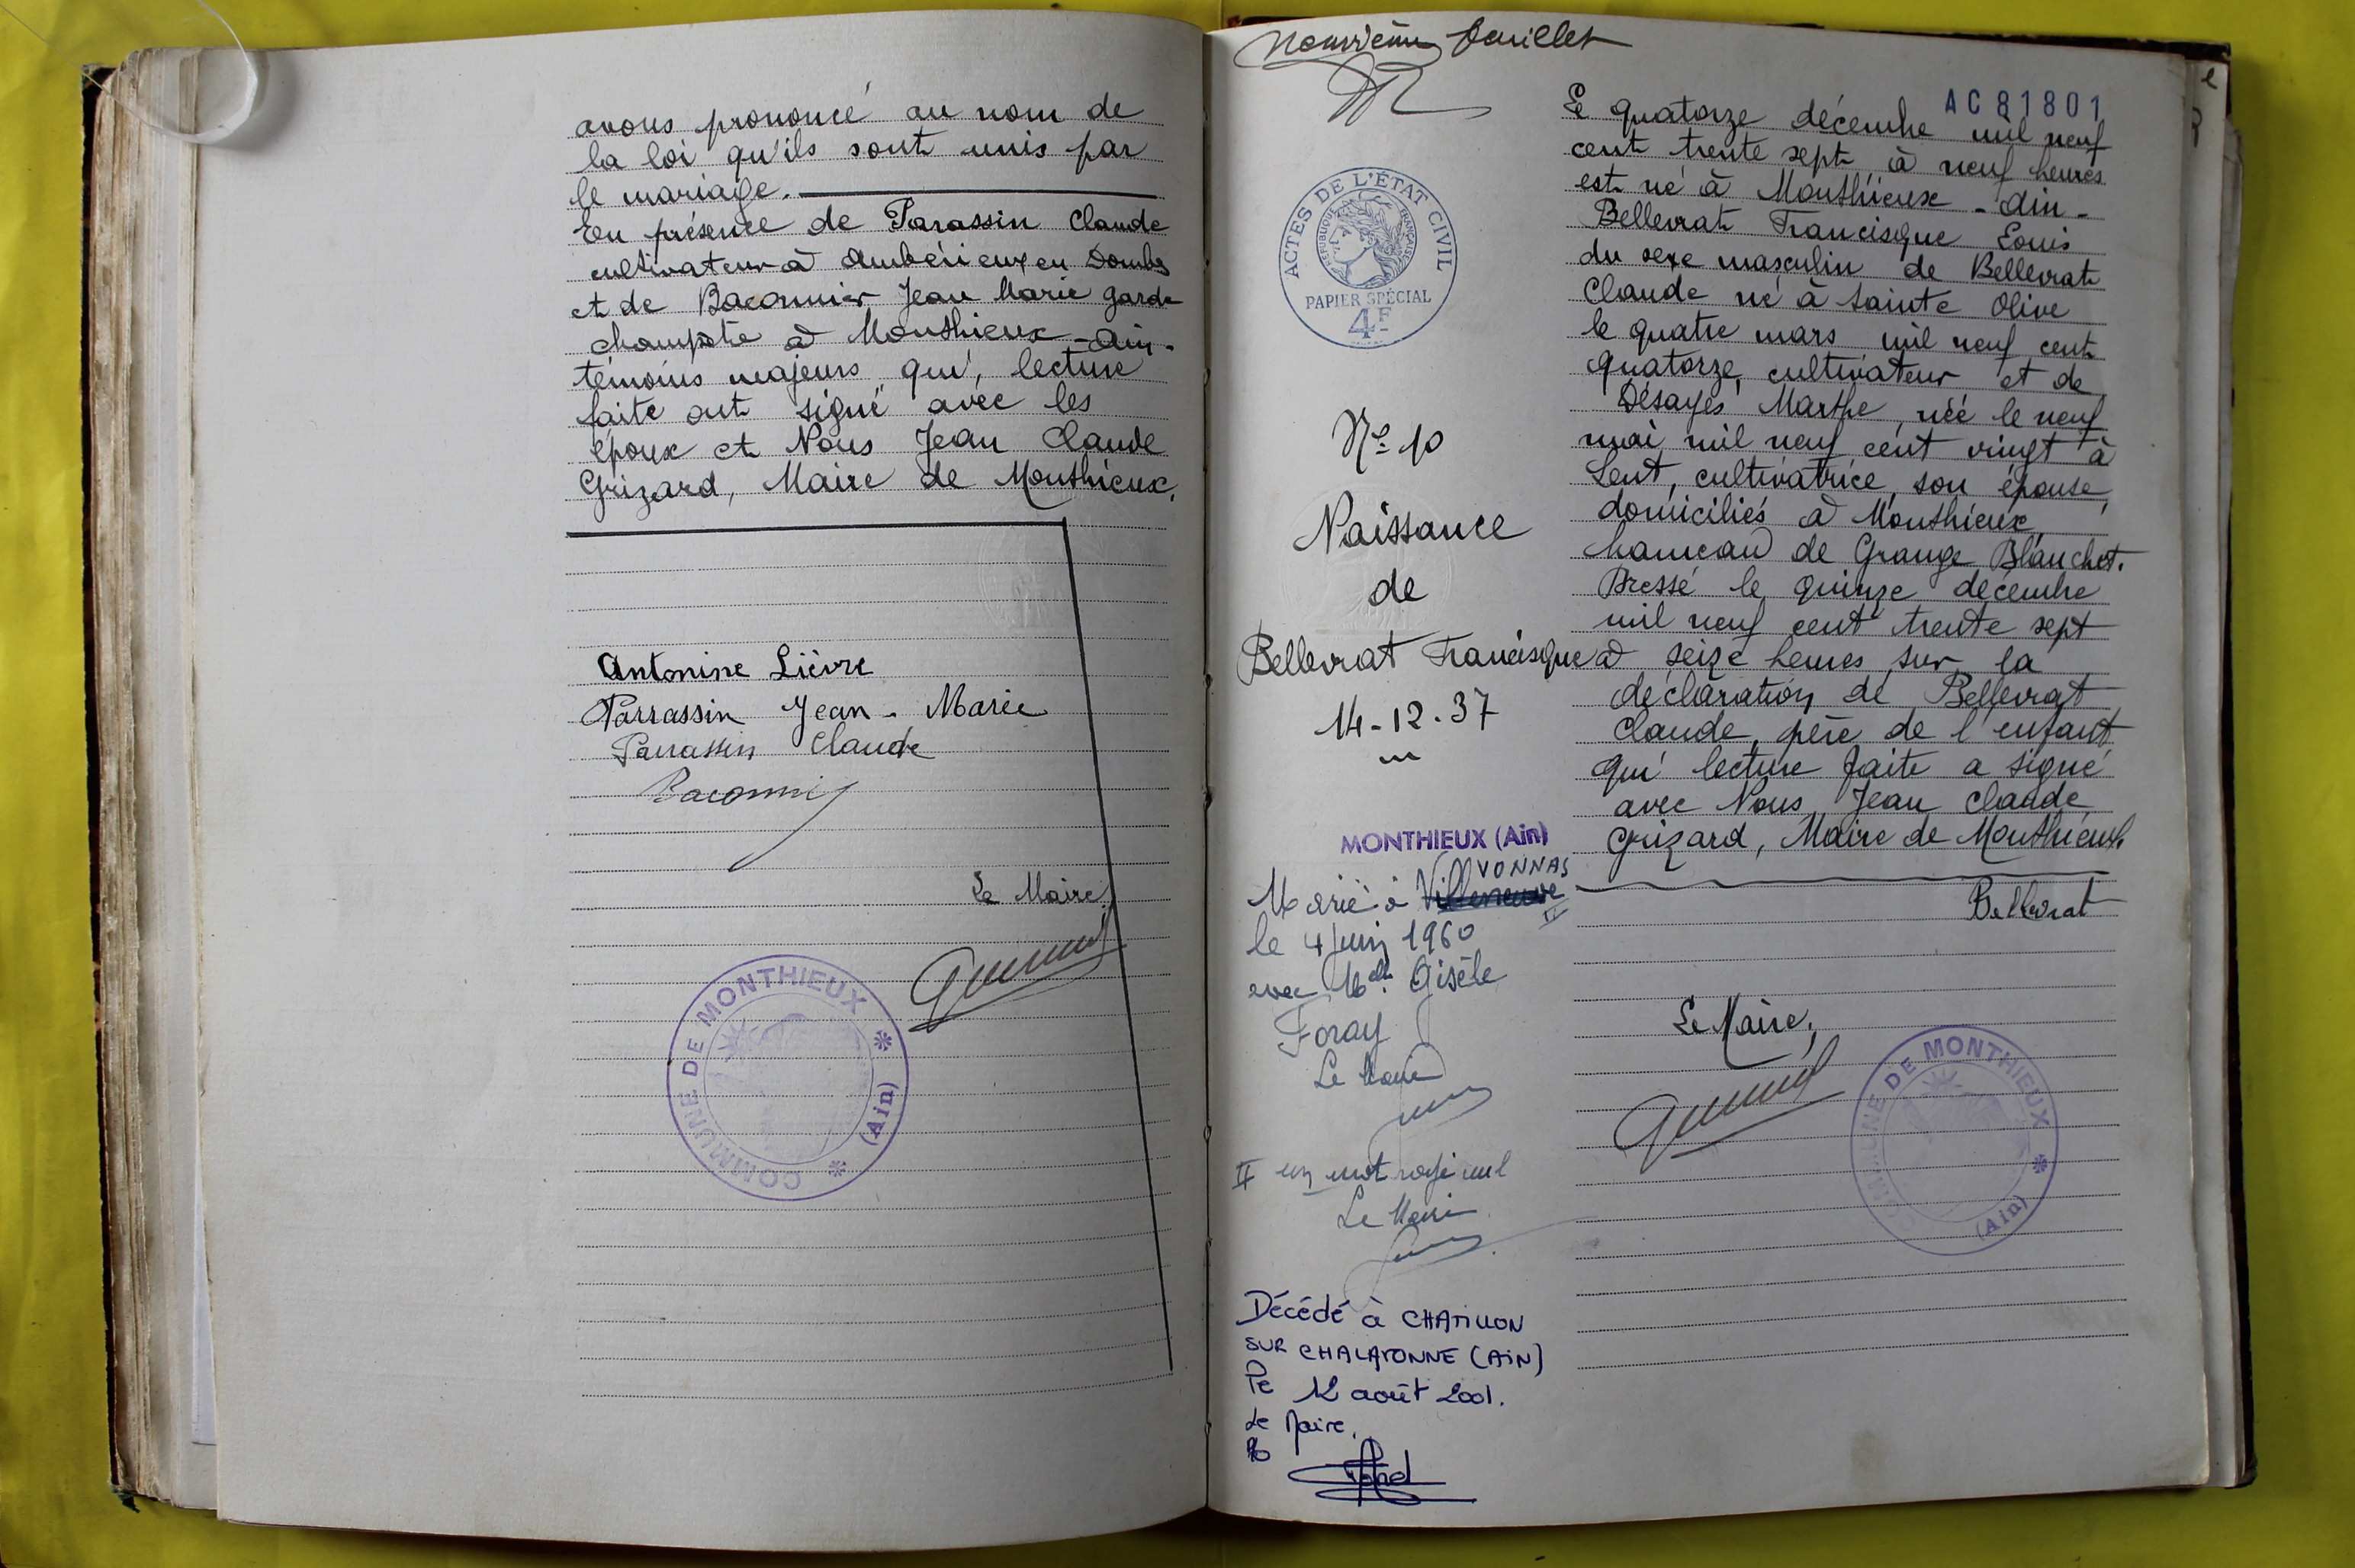 avons prononcé au nom de
la loi qu'ils sont unis par
le mariage.
En présence de Parassin Claude
cultivateur à Ambérieux en Dombes
et de Baconnier Jean Marie garde
champêtre à Monthieux - Ain -
témoins majeurs qui, lecture
faite ont signé avec les
époux et Nous Jean Claude
Grizard, Maire de Monthieux.
Antonine Lièvre
Parrassin Jean - Marie
Parrassin Claude
Baconnier
Le Maire,
COMMUNE DE MONTHIEUX
(Ain)
Neuvième feuillet
ACTES DE L'ÉTAT CIVIL
RÉPUBLIQUE FRANÇAISE
PAPIER SPÉCIAL
4F
No 10
Naissance
de
Bellevrat Francisque
14-12-37
MONTHIEUX (Ain)
VONNAS
Marié à Villeneuve
II
le 4 juin 1960
avec Melle Gisèle
Foray
Le Maire
II un mot rayé nul
Le Maire
Décédé à CHATILLON
SUR CHALARONNE (AIN)
le 12 août 2001.
Le Maire,
AC 81801
Le quatorze décembre mil neuf
cent trente sept à neuf heures
est né à Monthieux - Ain -
Bellevrat Francisque Louis
du sexe masculin de Bellevrat
Claude né à Sainte Olive
le quatre mars mil neuf cent
quatorze, cultivateur et de
Désayes Marthe, née le neuf
mai mil neuf cent vingt à
Lent, cultivatrice, son épouse,
domiciliés à Monthieux,
hameau de Grange Blanchet.
Dressé le quinze décembre
mil neuf cent trente sept
à seize heures sur la
déclaration de Bellevrat
Claude, père de l'enfant
qui lecture faite a signé
avec Nous, Jean Claude
Grizard, Maire de Monthieux.
Bellevrat
Le Maire,
COMMUNE DE MONTHIEUX
(Ain)